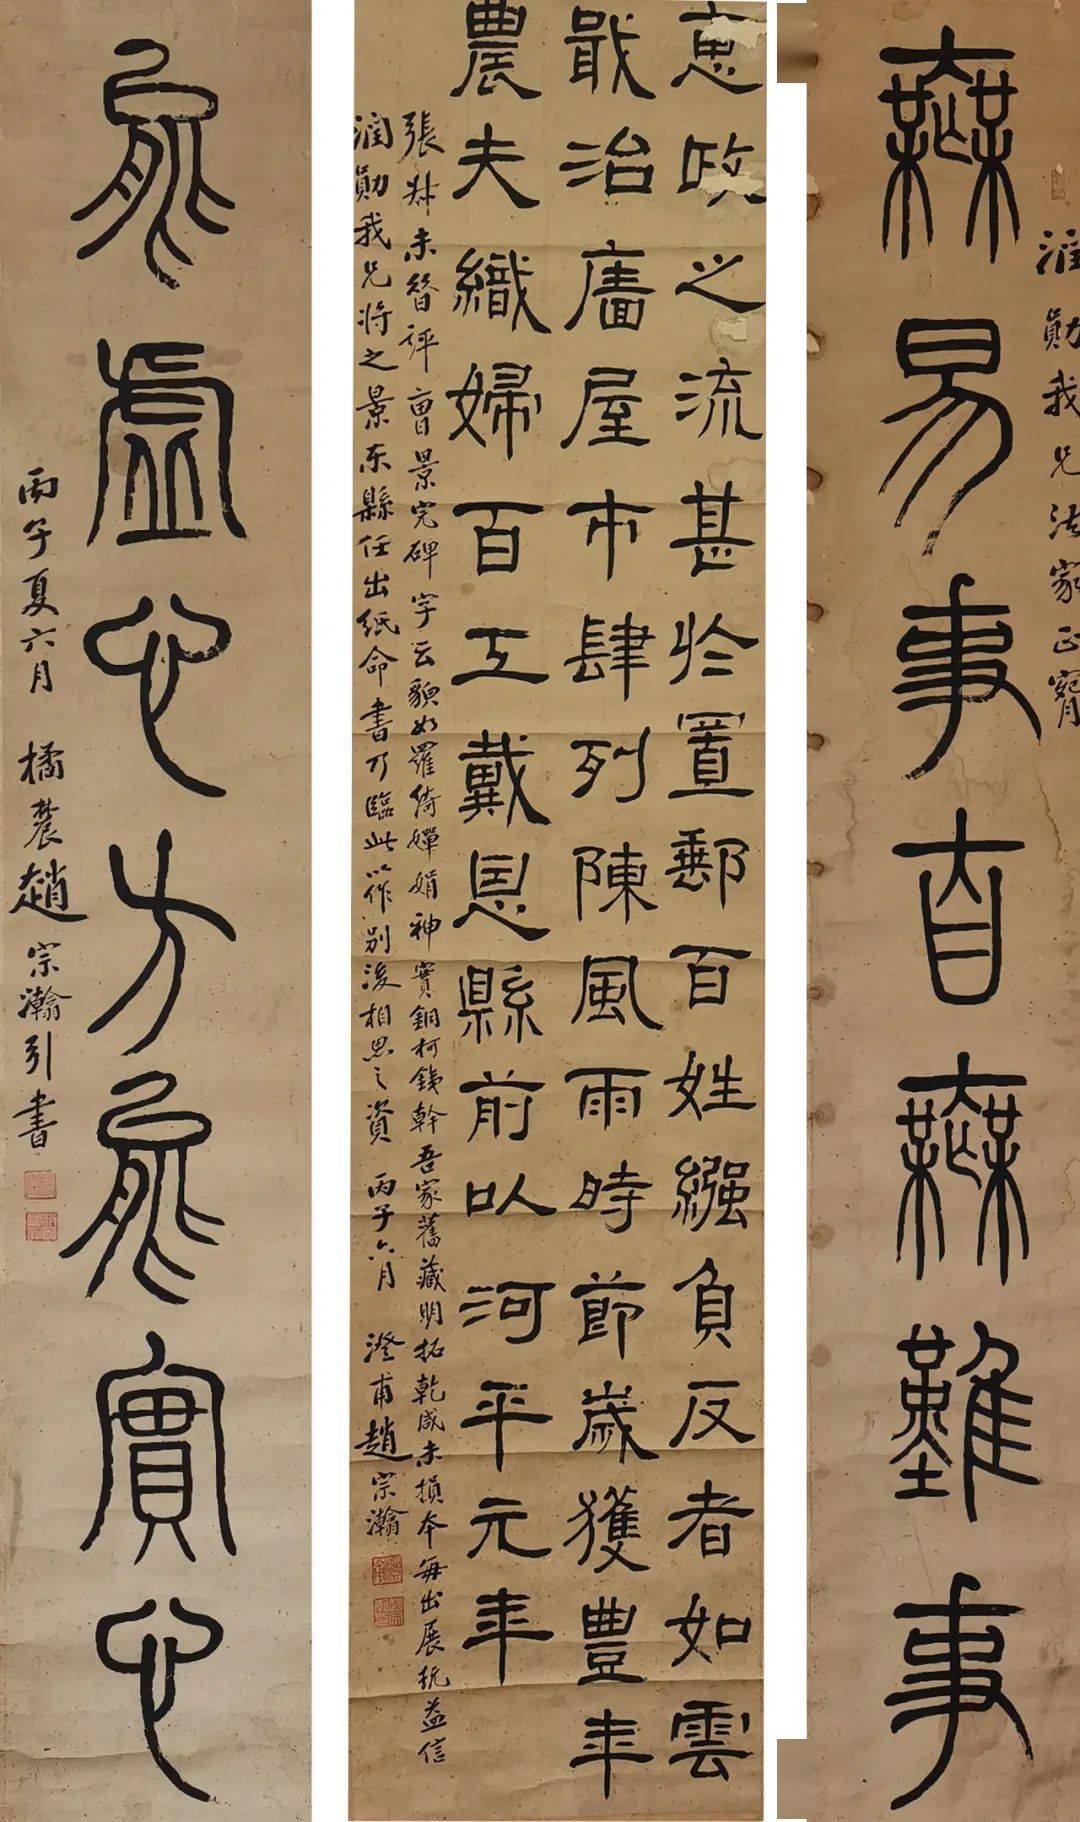 潤勛我兄法家正
無易事自無難事
惠政之流甚於置郵百姓繦負反者如雲
戢治廧屋市肆列陳風雨時節歲獲豐年
農夫織婦百工戴恩縣前以河平元年
張叔未簪評曹景完碑字云貌如羅綺嬋娟神實銅柯鐵幹吾家舊藏明拓乾咸未損本每出展玩益信
潤勛我兄將之景东縣任出紙命書乃臨此以作別後相思之資 丙子六月 澄甫趙宗瀚
能虛心方能實心
丙子夏六月 橘農趙宗瀚引書